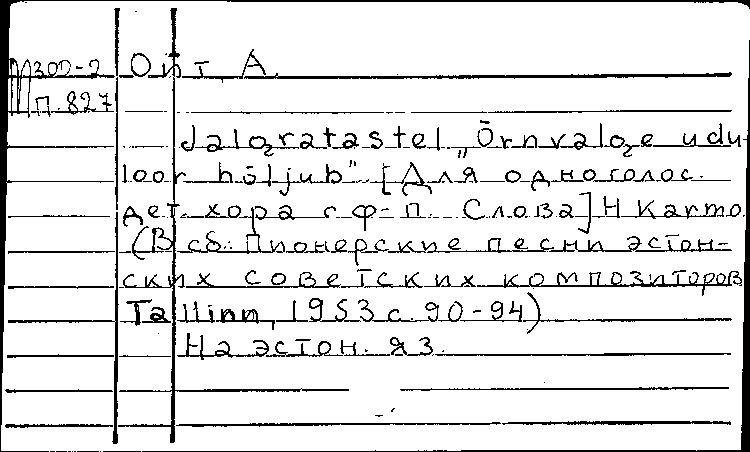 М300-2 Ойт, А.
П.827
Jalgratastel „Õrnvalge udu-
loor hõljub" [Для одноголос.
дет. хора с ф-п. Слова] Н Karmo
(В сб.: Пионерские песни эстон-
ских советских композиторов
Tallinn, 1953 с. 90-94)
На эстон. яз.